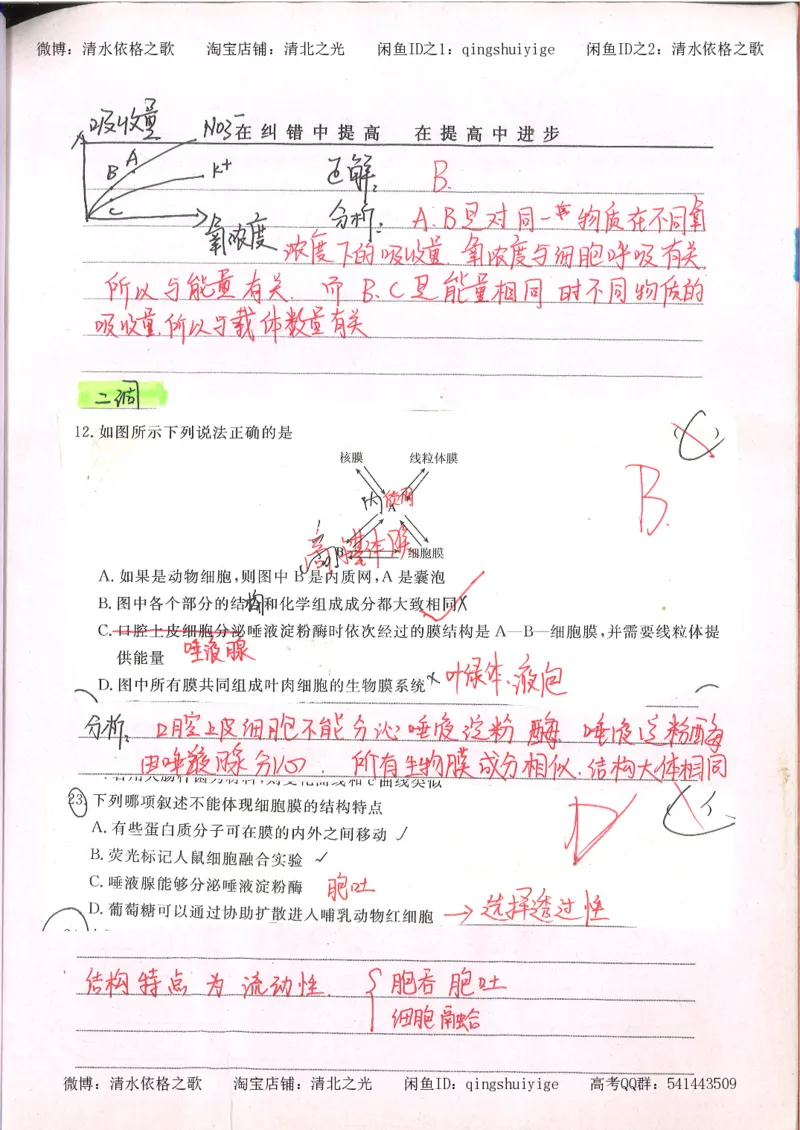 微博：清水依格之歌 淘宝店铺：清北之光 闲鱼ID之1：qingshuiyige 闲鱼ID之2：清水依格之歌
在纠错中提高 在提高中进步
吸收量
NO3-
K+
A
B
C
氧浓度
正解： B.
分析： A.B是对同一 物质在不同氧
浓度下的吸收量. 氧浓度与细胞呼吸有关.
所以与能量有关. 而B.C是能量相同时不同物质的
吸收量,所以与载体数量有关
二调
12. 如图所示下列说法正确的是
核膜 线粒体膜
内质网
A
高 体膜
细胞膜
B.
A. 如果是动物细胞,则图中B是内质网,A是囊泡
B. 图中各个部分的结构和化学组成成分都大致相同
C. 口腔上皮细胞分泌唾液淀粉酶时依次经过的膜结构是 A—B—细胞膜,并需要线粒体提
供能量 唾液腺
D. 图中所有膜共同组成叶肉细胞的生物膜系统× 叶绿体、液泡
分析： 口腔上皮细胞不能分泌唾液淀粉酶 唾液淀粉酶
由唾液腺分泌. 所有生物膜成分相似.结构大体相同
23. 下列哪项叙述不能体现细胞膜的结构特点
D
A. 有些蛋白质分子可在膜的内外之间移动 ✓
B. 荧光标记人鼠细胞融合实验 ✓
C. 唾液腺能够分泌唾液淀粉酶 胞吐
D. 葡萄糖可以通过协助扩散进入哺乳动物红细胞 → 选择透过性
结构特点为流动性. { 胞吞 胞吐
细胞融合
微博：清水依格之歌 淘宝店铺：清北之光 闲鱼ID：qingshuiyige 高考QQ群：541443509